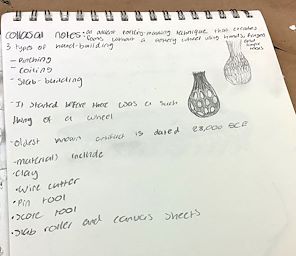 notes: an ancient pottery-making technique that creates
forms without a pottery wheel using hands, fingers
and simple tools
3 types of hand-building
- Pinching
- Coiling
- Slab-building
- It started before there was a such
thing of a wheel
- Oldest known artifact is dated 28,000 BCE
- materials include
• Clay
• Wire cutter
• Pin tool
• Score tool
• Slab roller and canvas sheets